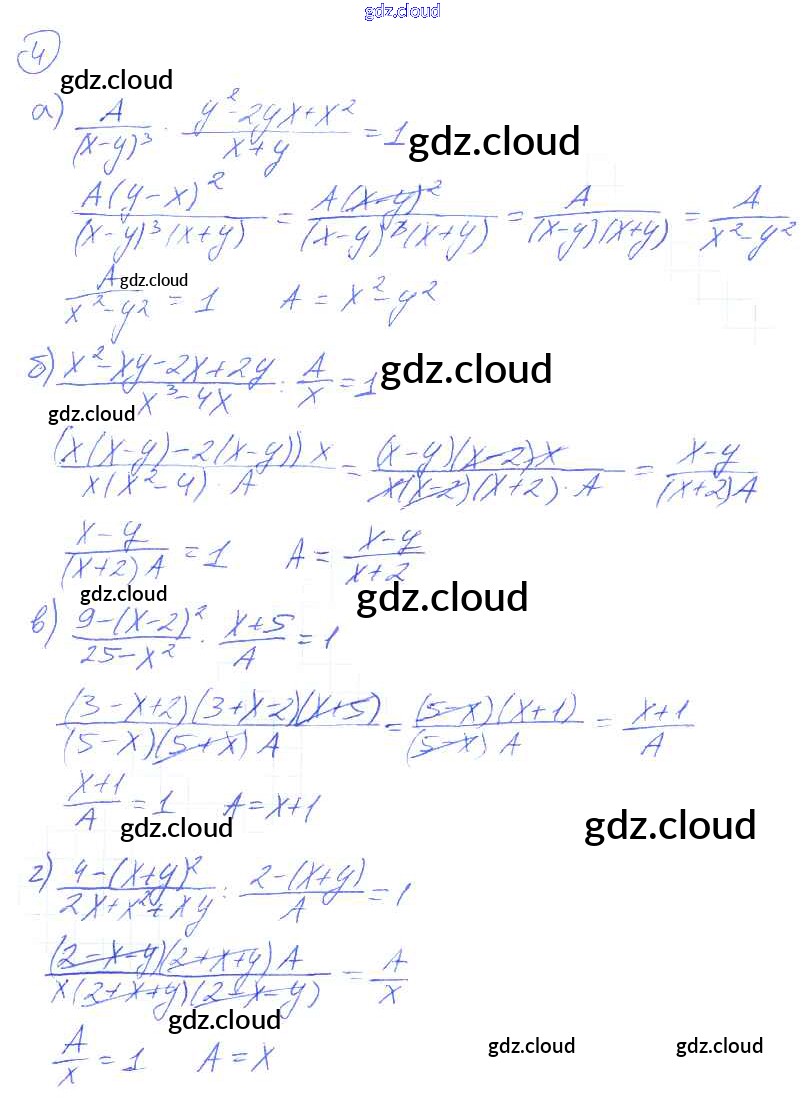 gdz.cloud
4
gdz.cloud
а) A/(x-y)³ · (y²-2yx+x²)/(x+y) = 1 gdz.cloud
A(y-x)²/((x-y)³(x+y)) = A(x-y)²/((x-y)³(x+y)) = A/((x-y)(x+y)) = A/(x²-y²)
gdz.cloud
A/(x²-y²) = 1 A = x²-y²
б) (x²-xy-2x+2y)/(x³-4x) : A/x = 1 gdz.cloud
gdz.cloud
(x(x-y)-2(x-y))x/(x(x²-4)·A) = (x-y)(x-2)x/(x(x-2)(x+2)·A) = (x-y)/((x+2)A)
(x-y)/((x+2)A) = 1 A = (x-y)/(x+2)
gdz.cloud gdz.cloud
в) (9-(x-2)²)/(25-x²) · (x+5)/A = 1
(3-x+2)(3+x-2)(x+5)/((5-x)(5+x)A) = (5-x)(x+1)/((5-x)A) = (x+1)/A
(x+1)/A = 1 A = x+1
gdz.cloud gdz.cloud
г) (4-(x+y)²)/(2x+x²+xy) : (2-(x+y))/A = 1
(2-x-y)(2+x+y)A/(x(2+x+y)(2-x-y)) = A/x
gdz.cloud
A/x = 1 A = x
gdz.cloud gdz.cloud